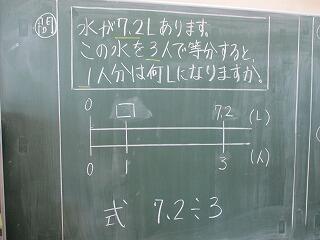 水が7.2Lあります。
この水を3人で等分すると、
1人分は何Lになりますか。
0 □ 7.2 (L)
0 1 3 (人)
式 7.2÷3